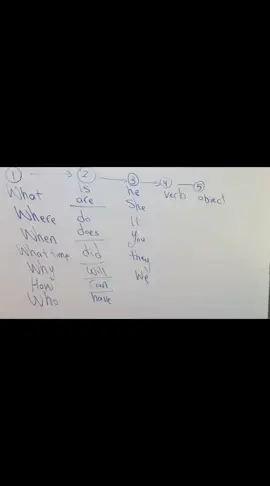 1 2 3 4 5
What is he verb object
are she
Where do it
When does you
What time did they
Why will we
How can
Who have